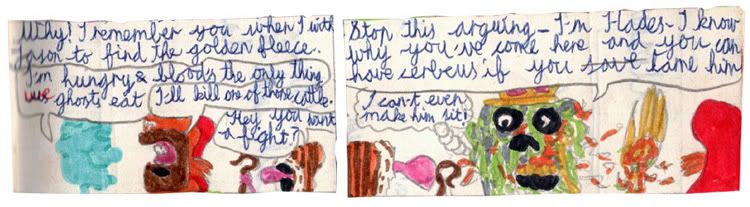 Why! I remember you when I with
Jason to find the golden fleece.
I'm hungry & blood's the only thing
we ghosts eat
I'll kill one of those cattle.
Hey, you want
a fight?
Stop this arguing - I'm Hades - I know
why you've come here - and you can
have cerbeus if you save tame him
I can't even
make him sit!